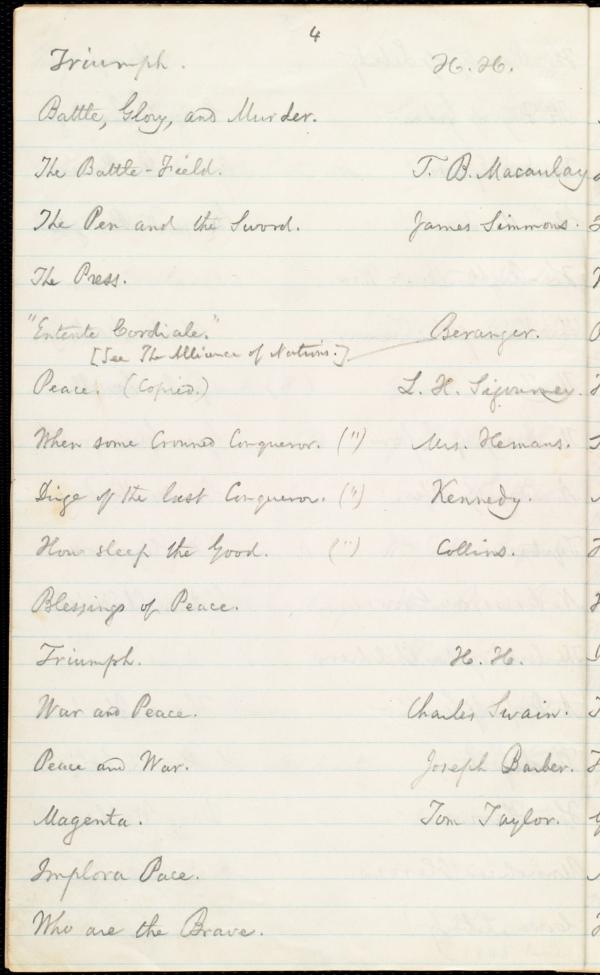 4
Triumph. H. H.
Battle, Glory, and Murder.
The Battle-Field. T. B. Macaulay
The Pen and the Sword. James Simmons.
The Press.
"Entente Cordiale." Beranger.
[See The Alliance of Nations.]
Peace. (Copied.) L. H. Sigourney.
When some Crowned Conqueror. (") Mrs. Hemans.
Dirge of the last Conqueror. (") Kennedy.
How sleep the Good. (") Collins.
Blessings of Peace.
Triumph. H. H.
War and Peace. Charles Swain.
Peace and War. Joseph Barber.
Magenta. Tom Taylor.
Implora Pace.
Who are the Brave.